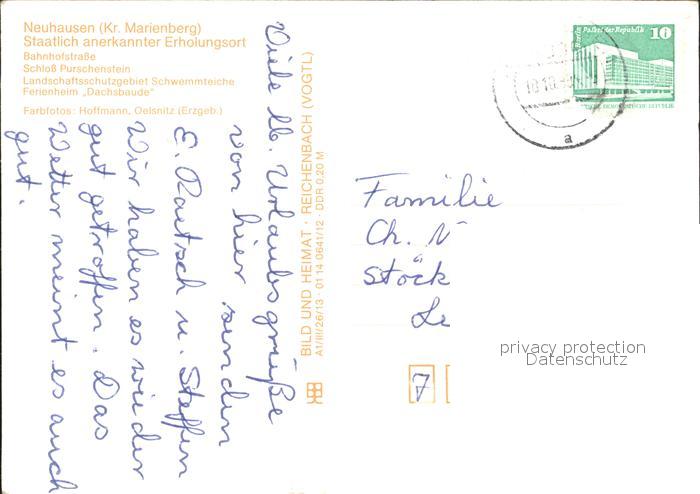 Neuhausen (Kr. Marienberg)
Staatlich anerkannter Erholungsort
Bahnhofstraße
Schloß Purschenstein
Landschaftsschutzgebiet Schwemmteiche
Ferienheim „Dachsbaude"
Farbfotos: Hoffmann, Oelsnitz (Erzgeb.)
Viele lb. Urlaubsgrüße
von hier senden
E. Raetsch u. Steffen
Wir haben es wieder
gut getroffen. Das
Wetter meint es auch
gut.
BILD UND HEIMAT · REICHENBACH (VOGTL)
A1/III/26/13 · 01 14 0641/12 · DDR 0,20 M
Berlin Palast der Republik 10
a
Familie
Ch. N
Stöck
Le
7
privacy protection
Datenschutz